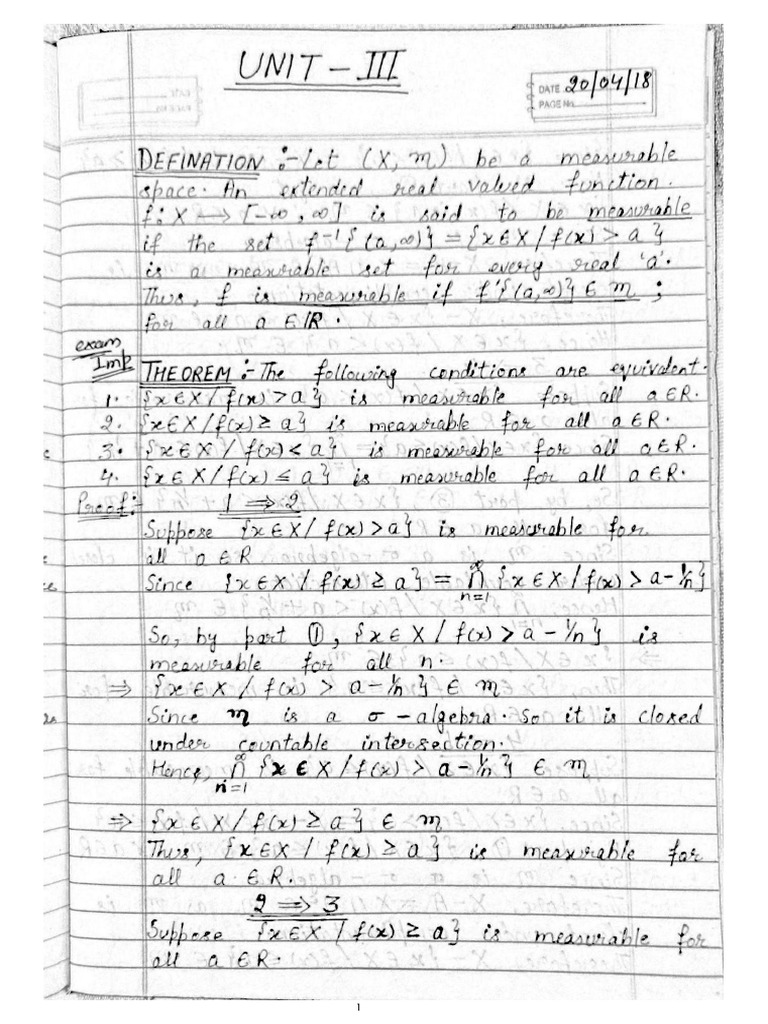 UNIT - III
DATE 20/04/18
PAGE No.
DEFINATION :- Let (X, m) be a measurable
space. An extended real valued function.
f: X ⟶ [-∞, ∞] is said to be measurable
if the set f⁻¹{(a,∞)} = {x∈X / f(x) > a}
is a measurable set for every real 'a'.
Thus, f is measurable if f⁻¹{(a,∞)} ∈ m ;
for all a ∈ IR.
exam
Imp
THEOREM :- The following conditions are equivalent.
1. {x∈X / f(x) > a} is measurable for all a∈R.
2. {x∈X / f(x) ≥ a} is measurable for all a∈R.
3. {x∈X / f(x) < a} is measurable for all a∈R.
4. {x∈X / f(x) ≤ a} is measurable for all a∈R.
Proof:- 1 ⟹ 2
Suppose {x∈X / f(x) > a} is measurable for
all a ∈ R
Since {x∈X / f(x) ≥ a} = ∩_{n=1}^{∞} {x∈X / f(x) > a - 1/n}
So, by part ①, {x∈X / f(x) > a - 1/n} is
measurable for all n.
⇒ {x∈X / f(x) > a - 1/n} ∈ m
Since m is a σ-algebra. So it is closed
under countable intersection.
Hence, ∩_{n=1}^{∞} {x∈X / f(x) > a - 1/n} ∈ m
⇒ {x∈X / f(x) ≥ a} ∈ m
Thus, {x∈X / f(x) ≥ a} is measurable for
all a ∈ R.
2 ⟹ 3
Suppose {x∈X / f(x) ≥ a} is measurable for
all a∈R.
1